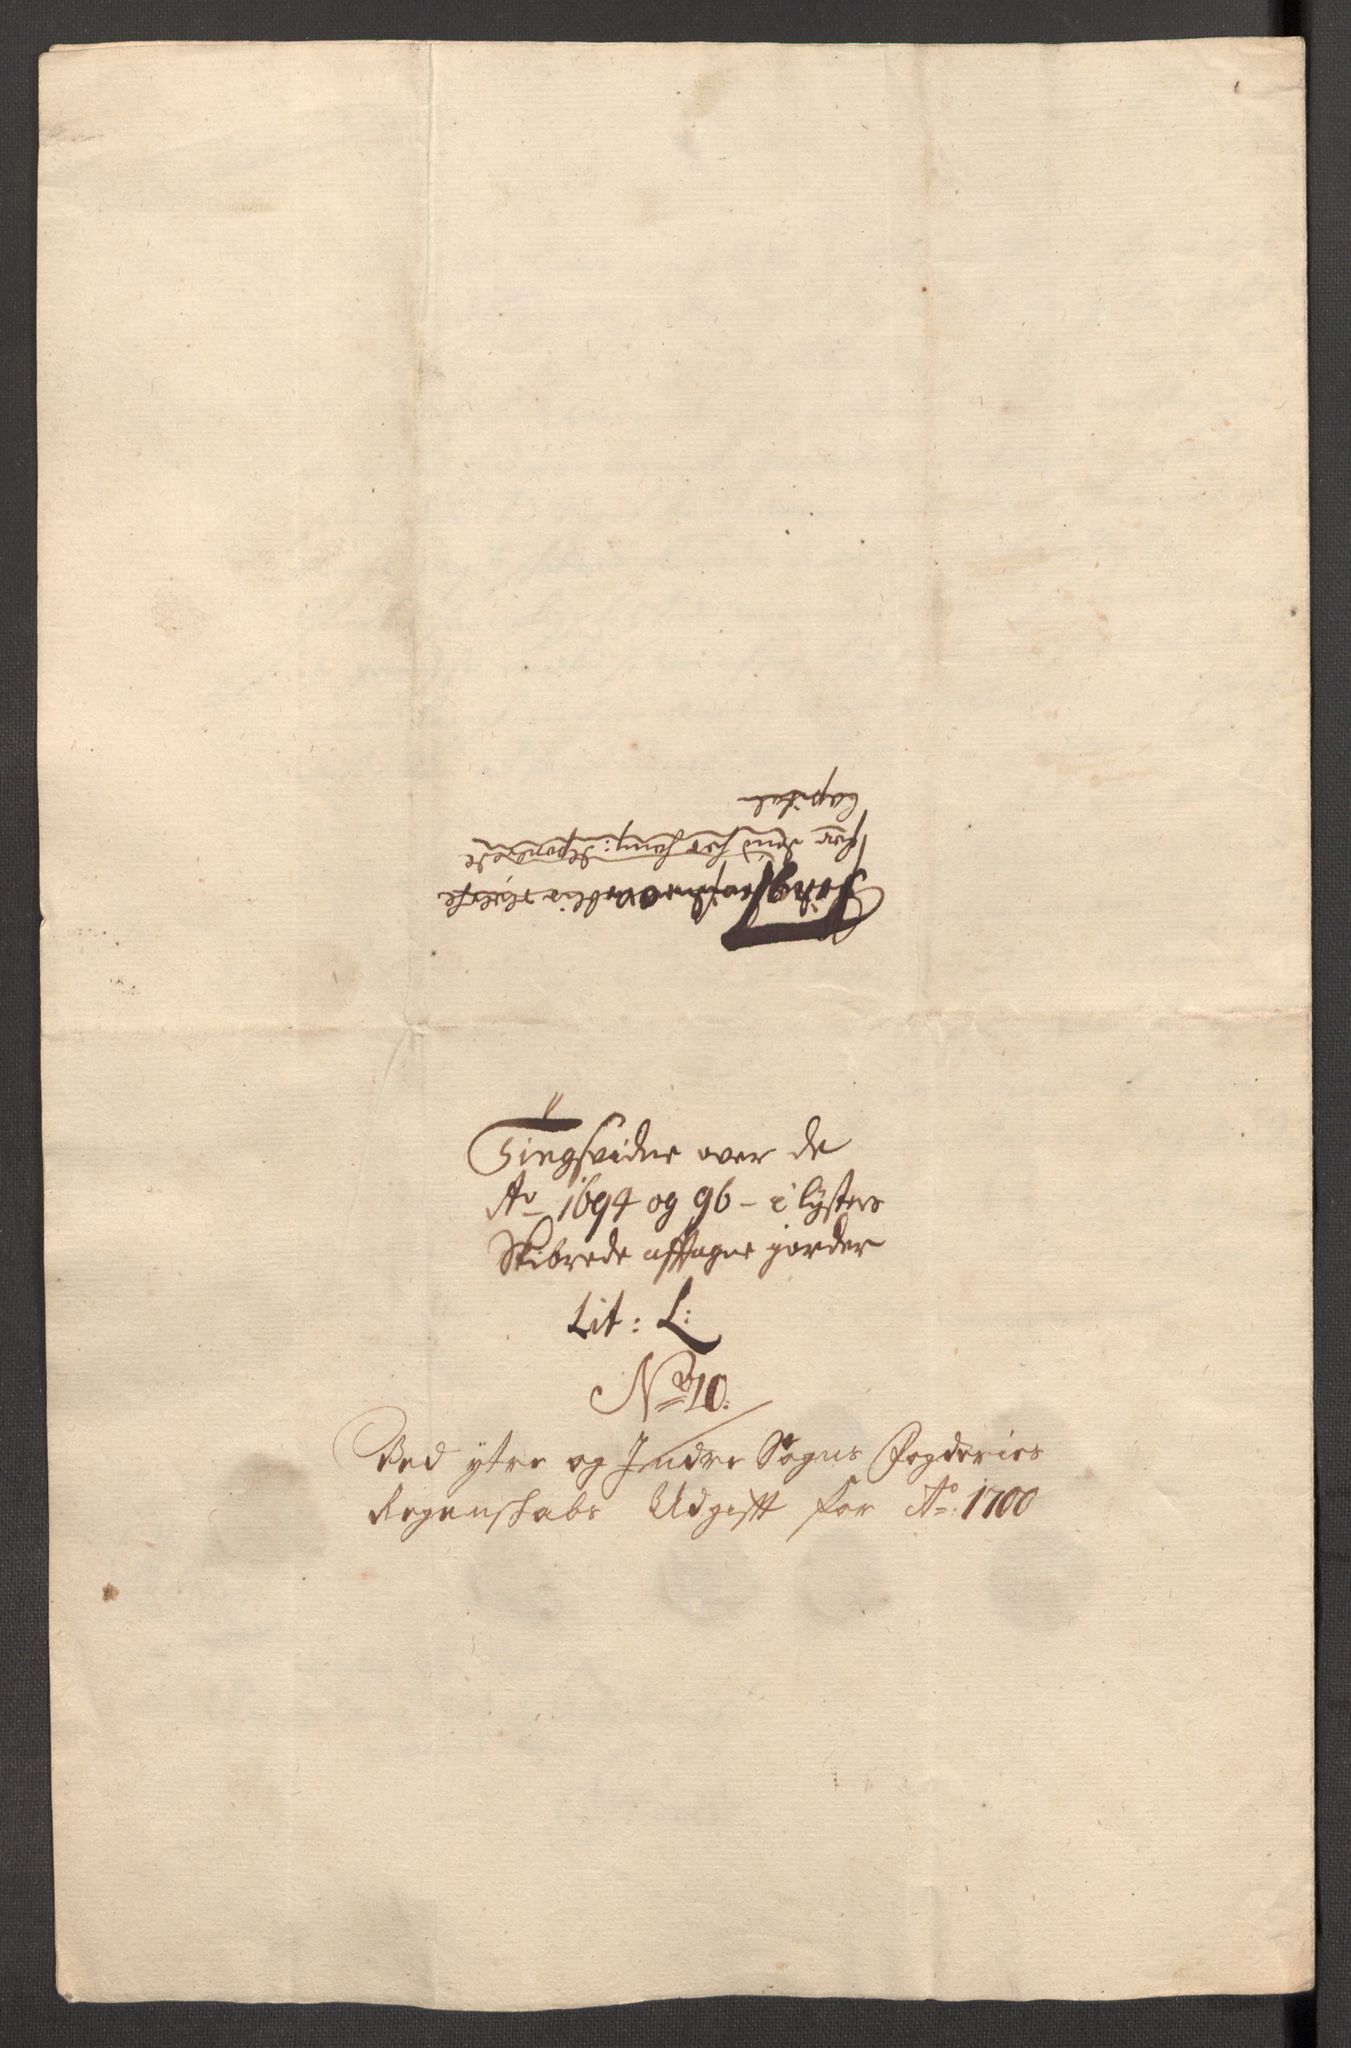 Tingsvidne over de
Ao 1694 og 96 – i lysters
Skibrede afftagne gorder
Lit: L:
No 10:
Ved ytre og Jndre Sogns Fogderies
Regenskabs Udgifft for Ao: 1700
Capital